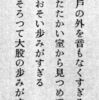 戸の外を音もなくすぎ
たたかい室から見つめ
おそい歩みがすぎる
そろつて大股の歩みが